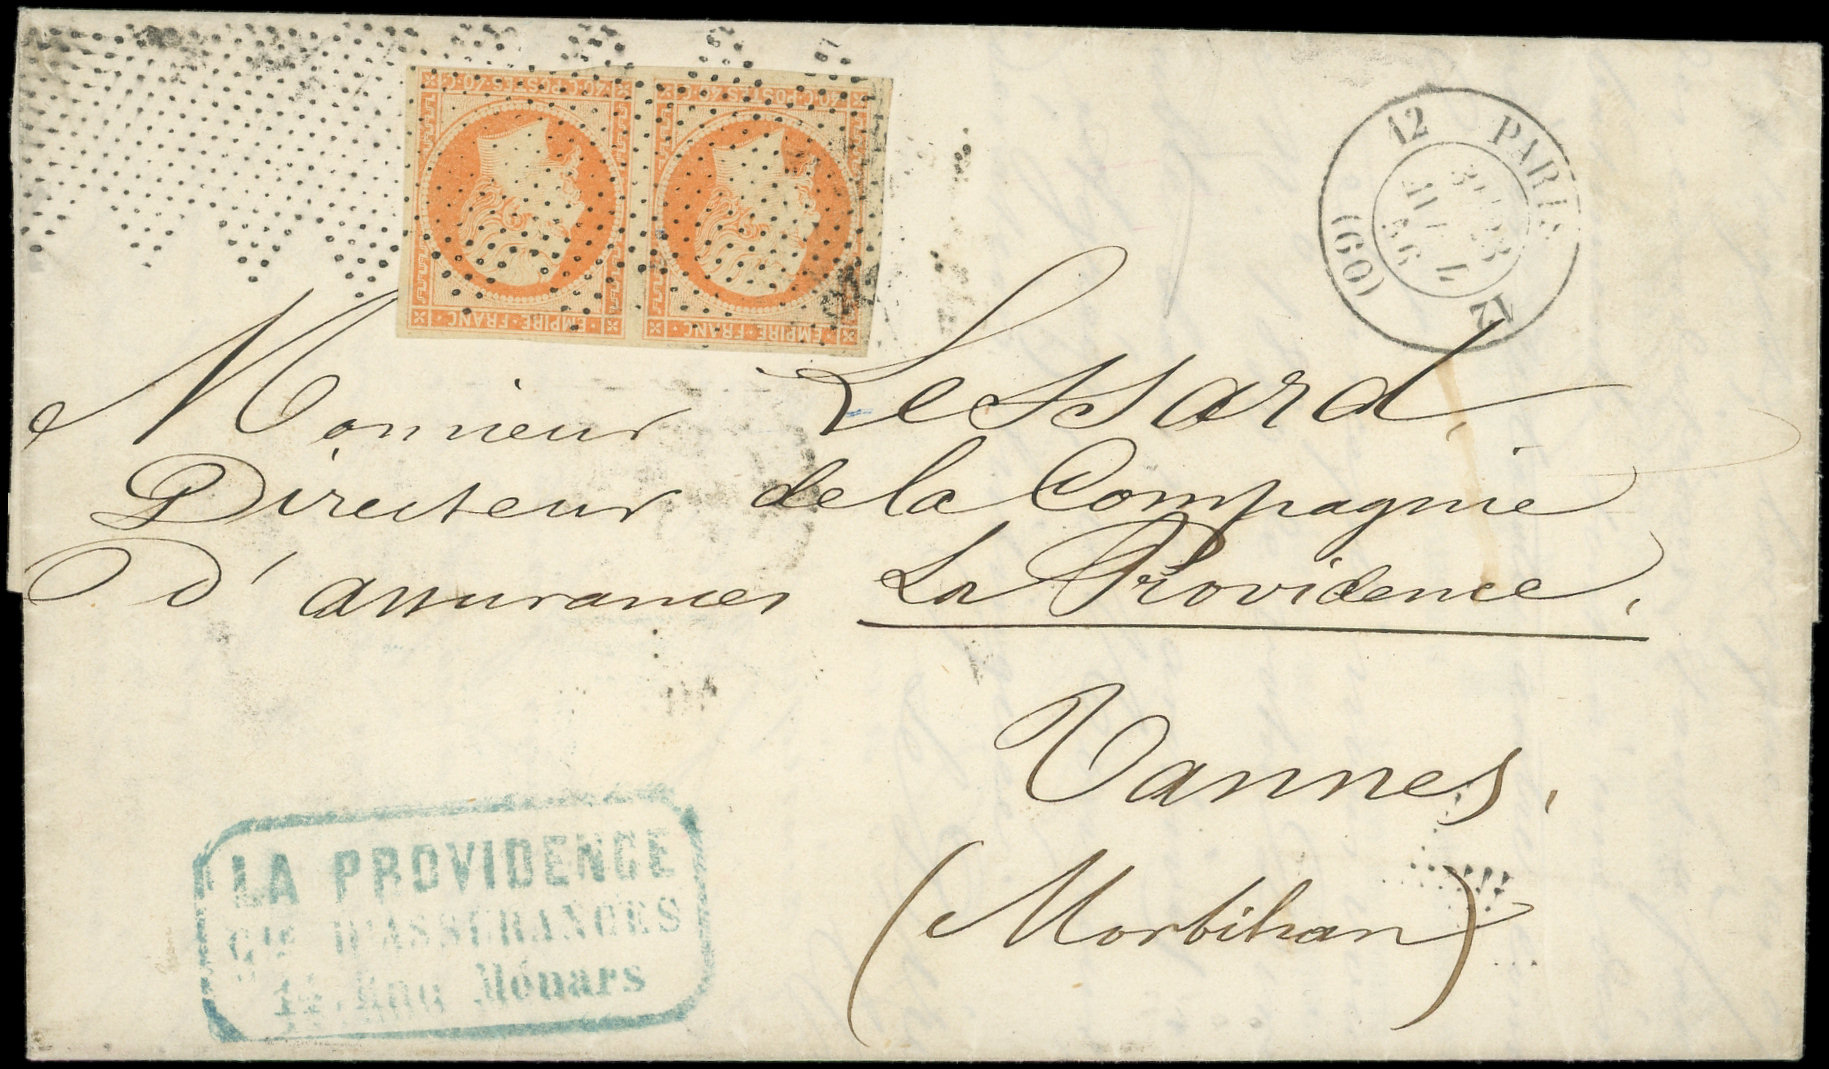 40·C·POSTES·40·C
40·C·POSTES·40·C
EMPIRE·FRANC
EMPIRE·FRANC
12 PARIS 12
(60)
JUIL
56
Monsieur Lessard,
Directeur de la Compagnie
d'assurances La Providence,
Vannes,
(Morbihan)
LA PROVIDENCE
Cie D'ASSURANCES
12, Rue Ménars